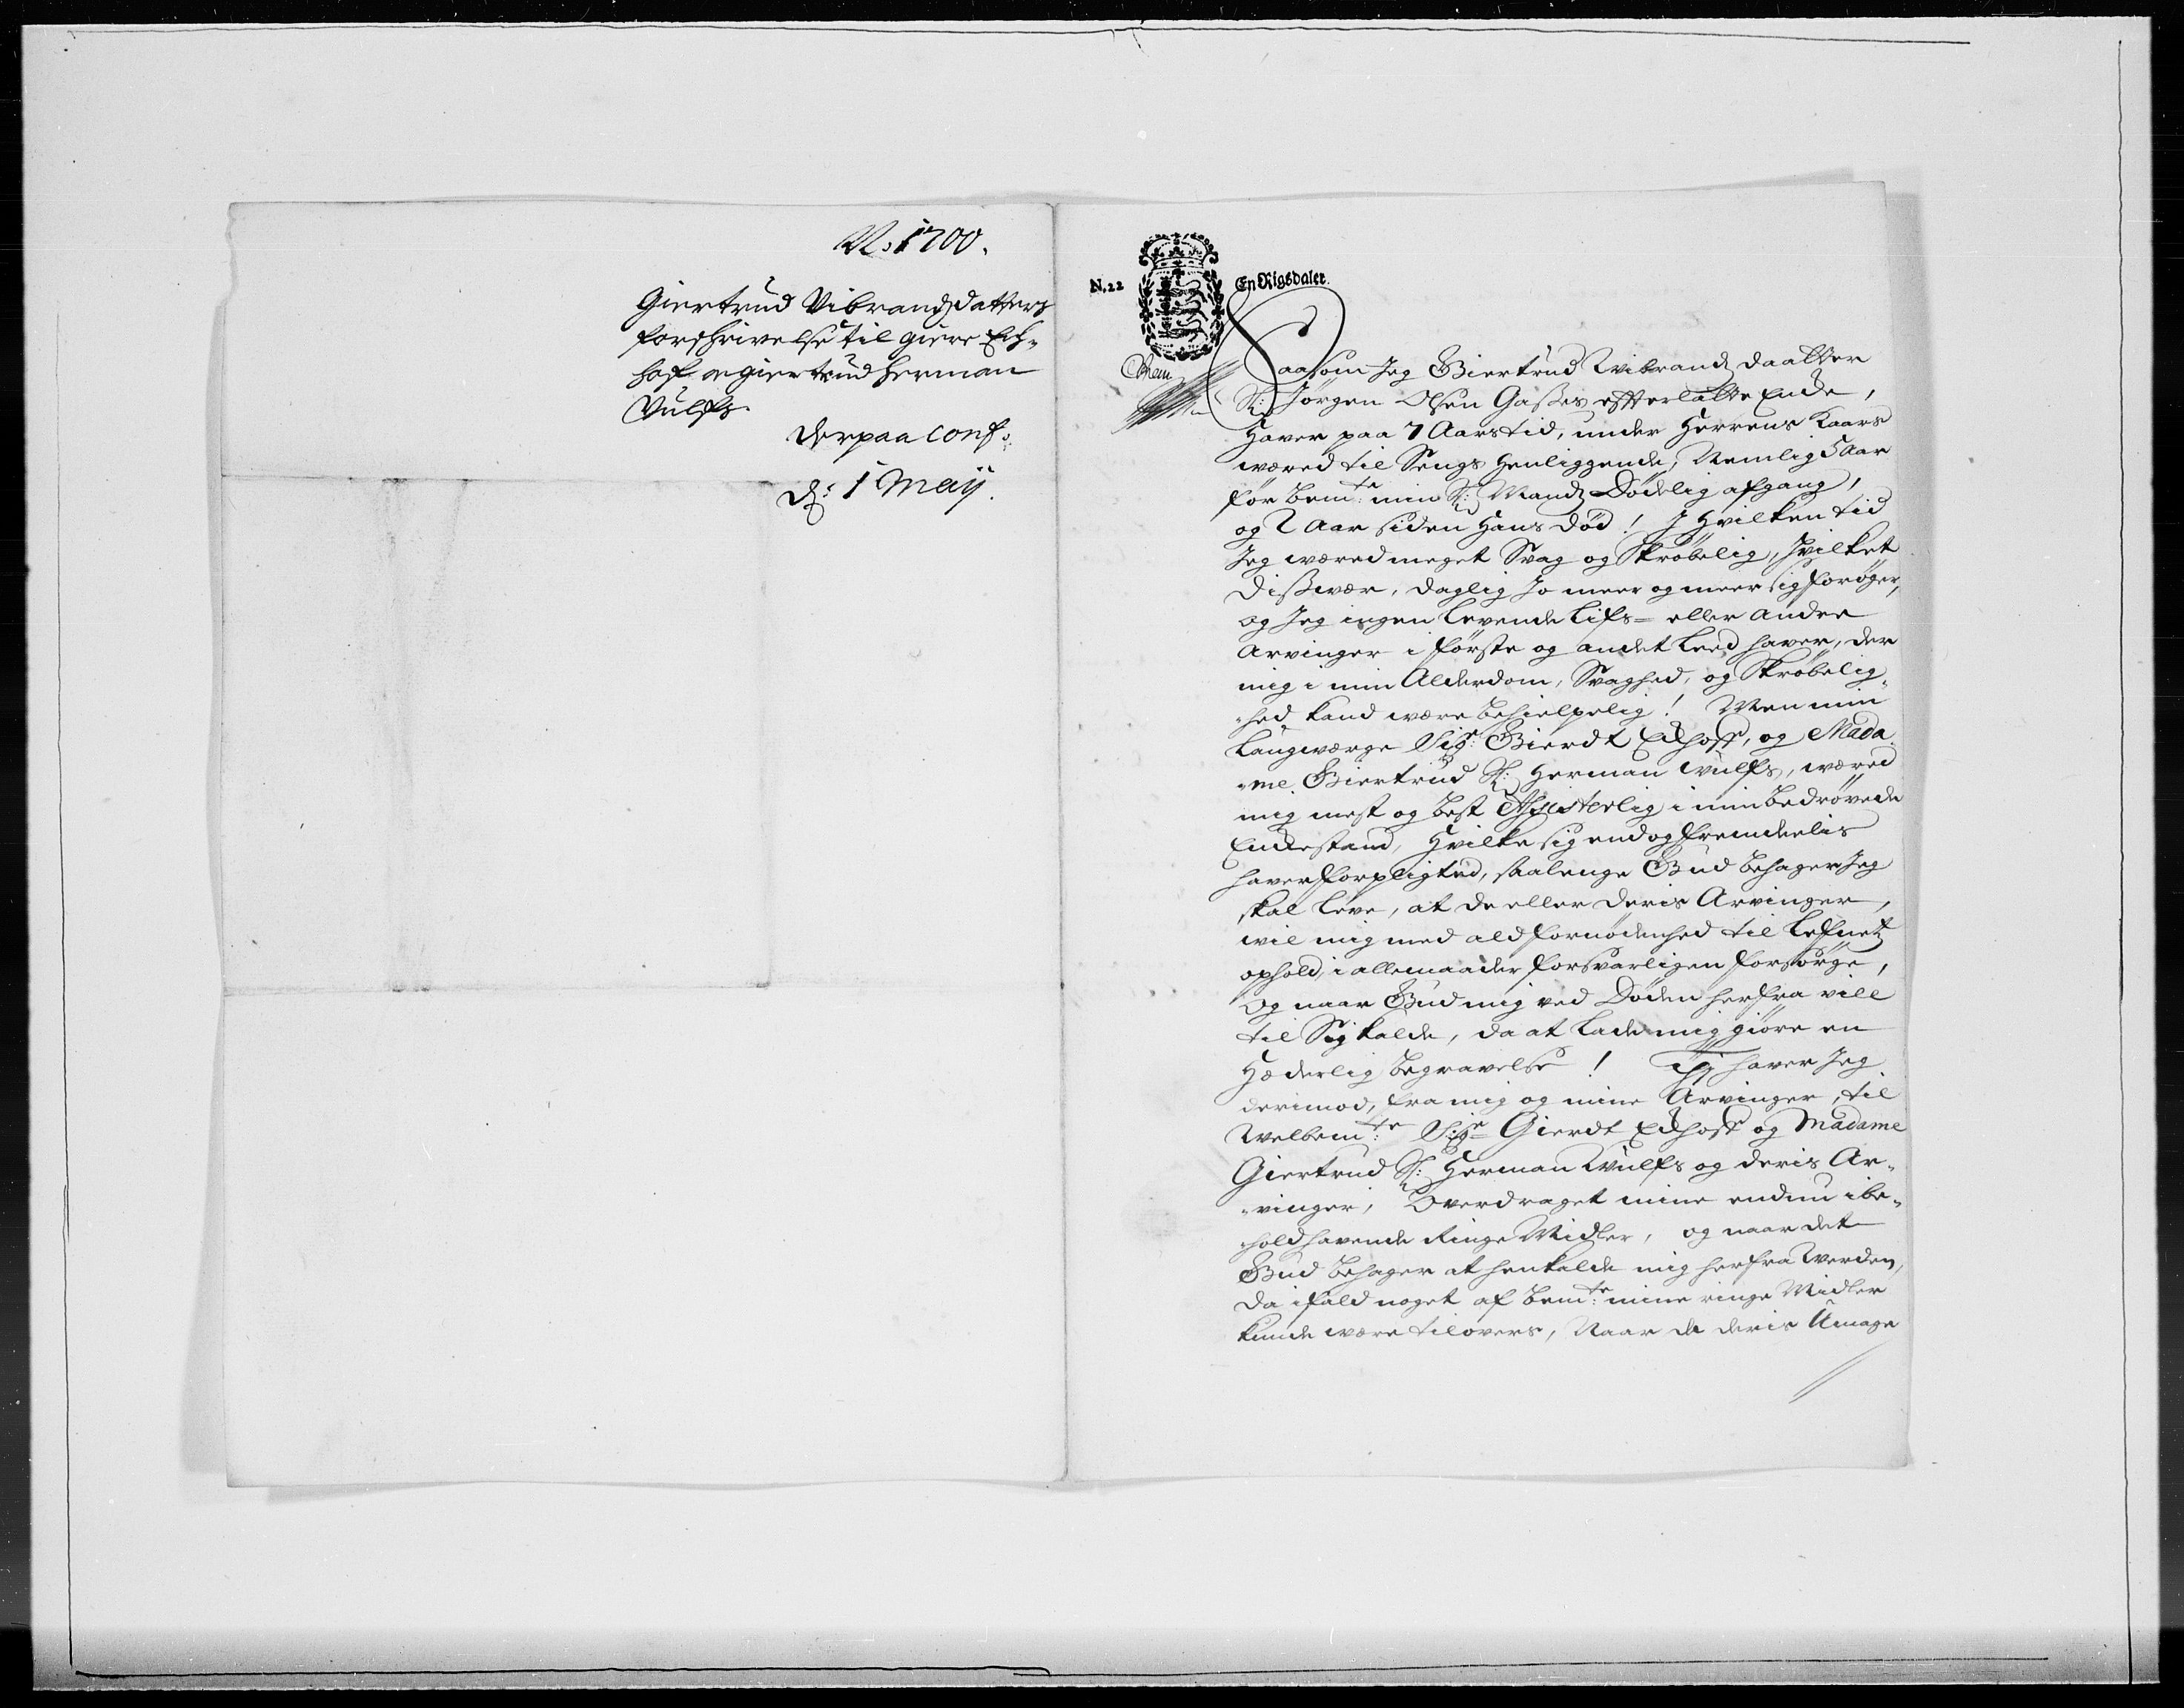 No: 1700.
Giertrud Vibrandsdatters
forschrivelse til Giere Eck-
hof og Giertrud Herman
Vulfs.
derpaa conf:
d: 1 Maij.
N. 22 En Rigsdaler.
Saasom Jeg Giertrud Wibrands daatter
Sl: Jørgen Olsen Gasses efterlatte Encke,
Haver paa 7 Aars tid, under Herrens Kaars
wæred til Sengs henliggende, Nemlig 5 Aar
før bemte: min Sl: Mands Dødelig afgang,
og 2 Aar siden Hans død! J Hvilken tid
Jeg wæred meget Svag og Skrøbelig, hvilket
dissvær, daglig jo meer og meer sig forøger,
og Jeg ingen levende Lifs- eller andre
Arvinger i første og andet Leed haver, der
mig i min Alderdom, Svaghed, og Skrøbelig-
-hed kand være behielpelig! Men min
Laugværge Sigr: Gierdt Eckhoff, og Mada-
-me Giertrud Sl: Herman Wulfs, wæred
mig mest og best Assisterlig i min bedrøvede
Enckestand, Hvilke sig endog fremdeelis
haver forpligted, saalenge Gud behager Jeg
skal leve, at de eller deris Arvinger,
wil mig med ald fornødenhed til Lefnets
ophold, i allemaader forsvarligen forsørge,
Og naar Gud mig ved Døden herfra vill
til Sig kalde, da at lade mig giøre en
Hæderlig begravelse! Thj haver Jeg
derimod, fra mig og mine Arvinger, til
Welbemte: Sigr Gierdt Eckhoff og Madame
Giertrud Sl: Herman Wulfs og deris Ar-
-vinger, Overdraget mine endnu i be-
-hold havende Ringe Midler, og naar det
Gud behager at henkalde mig herfra Verden,
da ifald noget af bemte: mine ringe Midler
kunde være tilovers, Naar de deris Umage